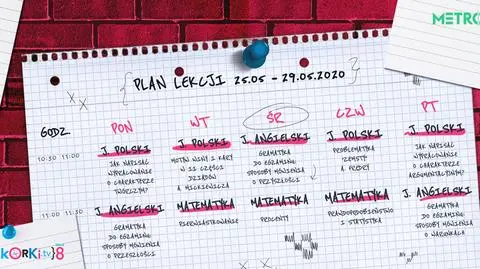 METRO
PLAN LEKCJI 25.05 - 29.05.2020
GODZ. PON WT ŚR CZW PT
10:30 - 11:00
J. POLSKI
JAK NAPISAĆ
WYPRACOWANIE
O CHARAKTERZE
TWÓRCZYM?
J. POLSKI
MOTYW WINY I KARY
W II CZĘŚCI
DZIADÓW
A. MICKIEWICZA
J. ANGIELSKI
GRAMATYKA
DO EGZAMINU
SPOSOBY MÓWIENIA
O PRZYSZŁOŚCI
J. POLSKI
PROBLEMATYKA
ZEMSTY
A. FREDRY
J. POLSKI
JAK NAPISAĆ
WYPRACOWANIE
O CHARAKTERZE
ARGUMENTACYJNYM?
11:00 - 11:30
J. ANGIELSKI
GRAMATYKA
DO EGZAMINU
SPOSOBY MÓWIENIA
O PRZESZŁOŚCI
MATEMATYKA
PIERWIASTKOWANIE
MATEMATYKA
PROCENTY
MATEMATYKA
PRAWDOPODOBIEŃSTWO
I STATYSTYKA
J. ANGIELSKI
GRAMATYKA
DO EGZAMINU
SPOSOBY MÓWIENIA
O WARUNKACH
KORKI.tv}8